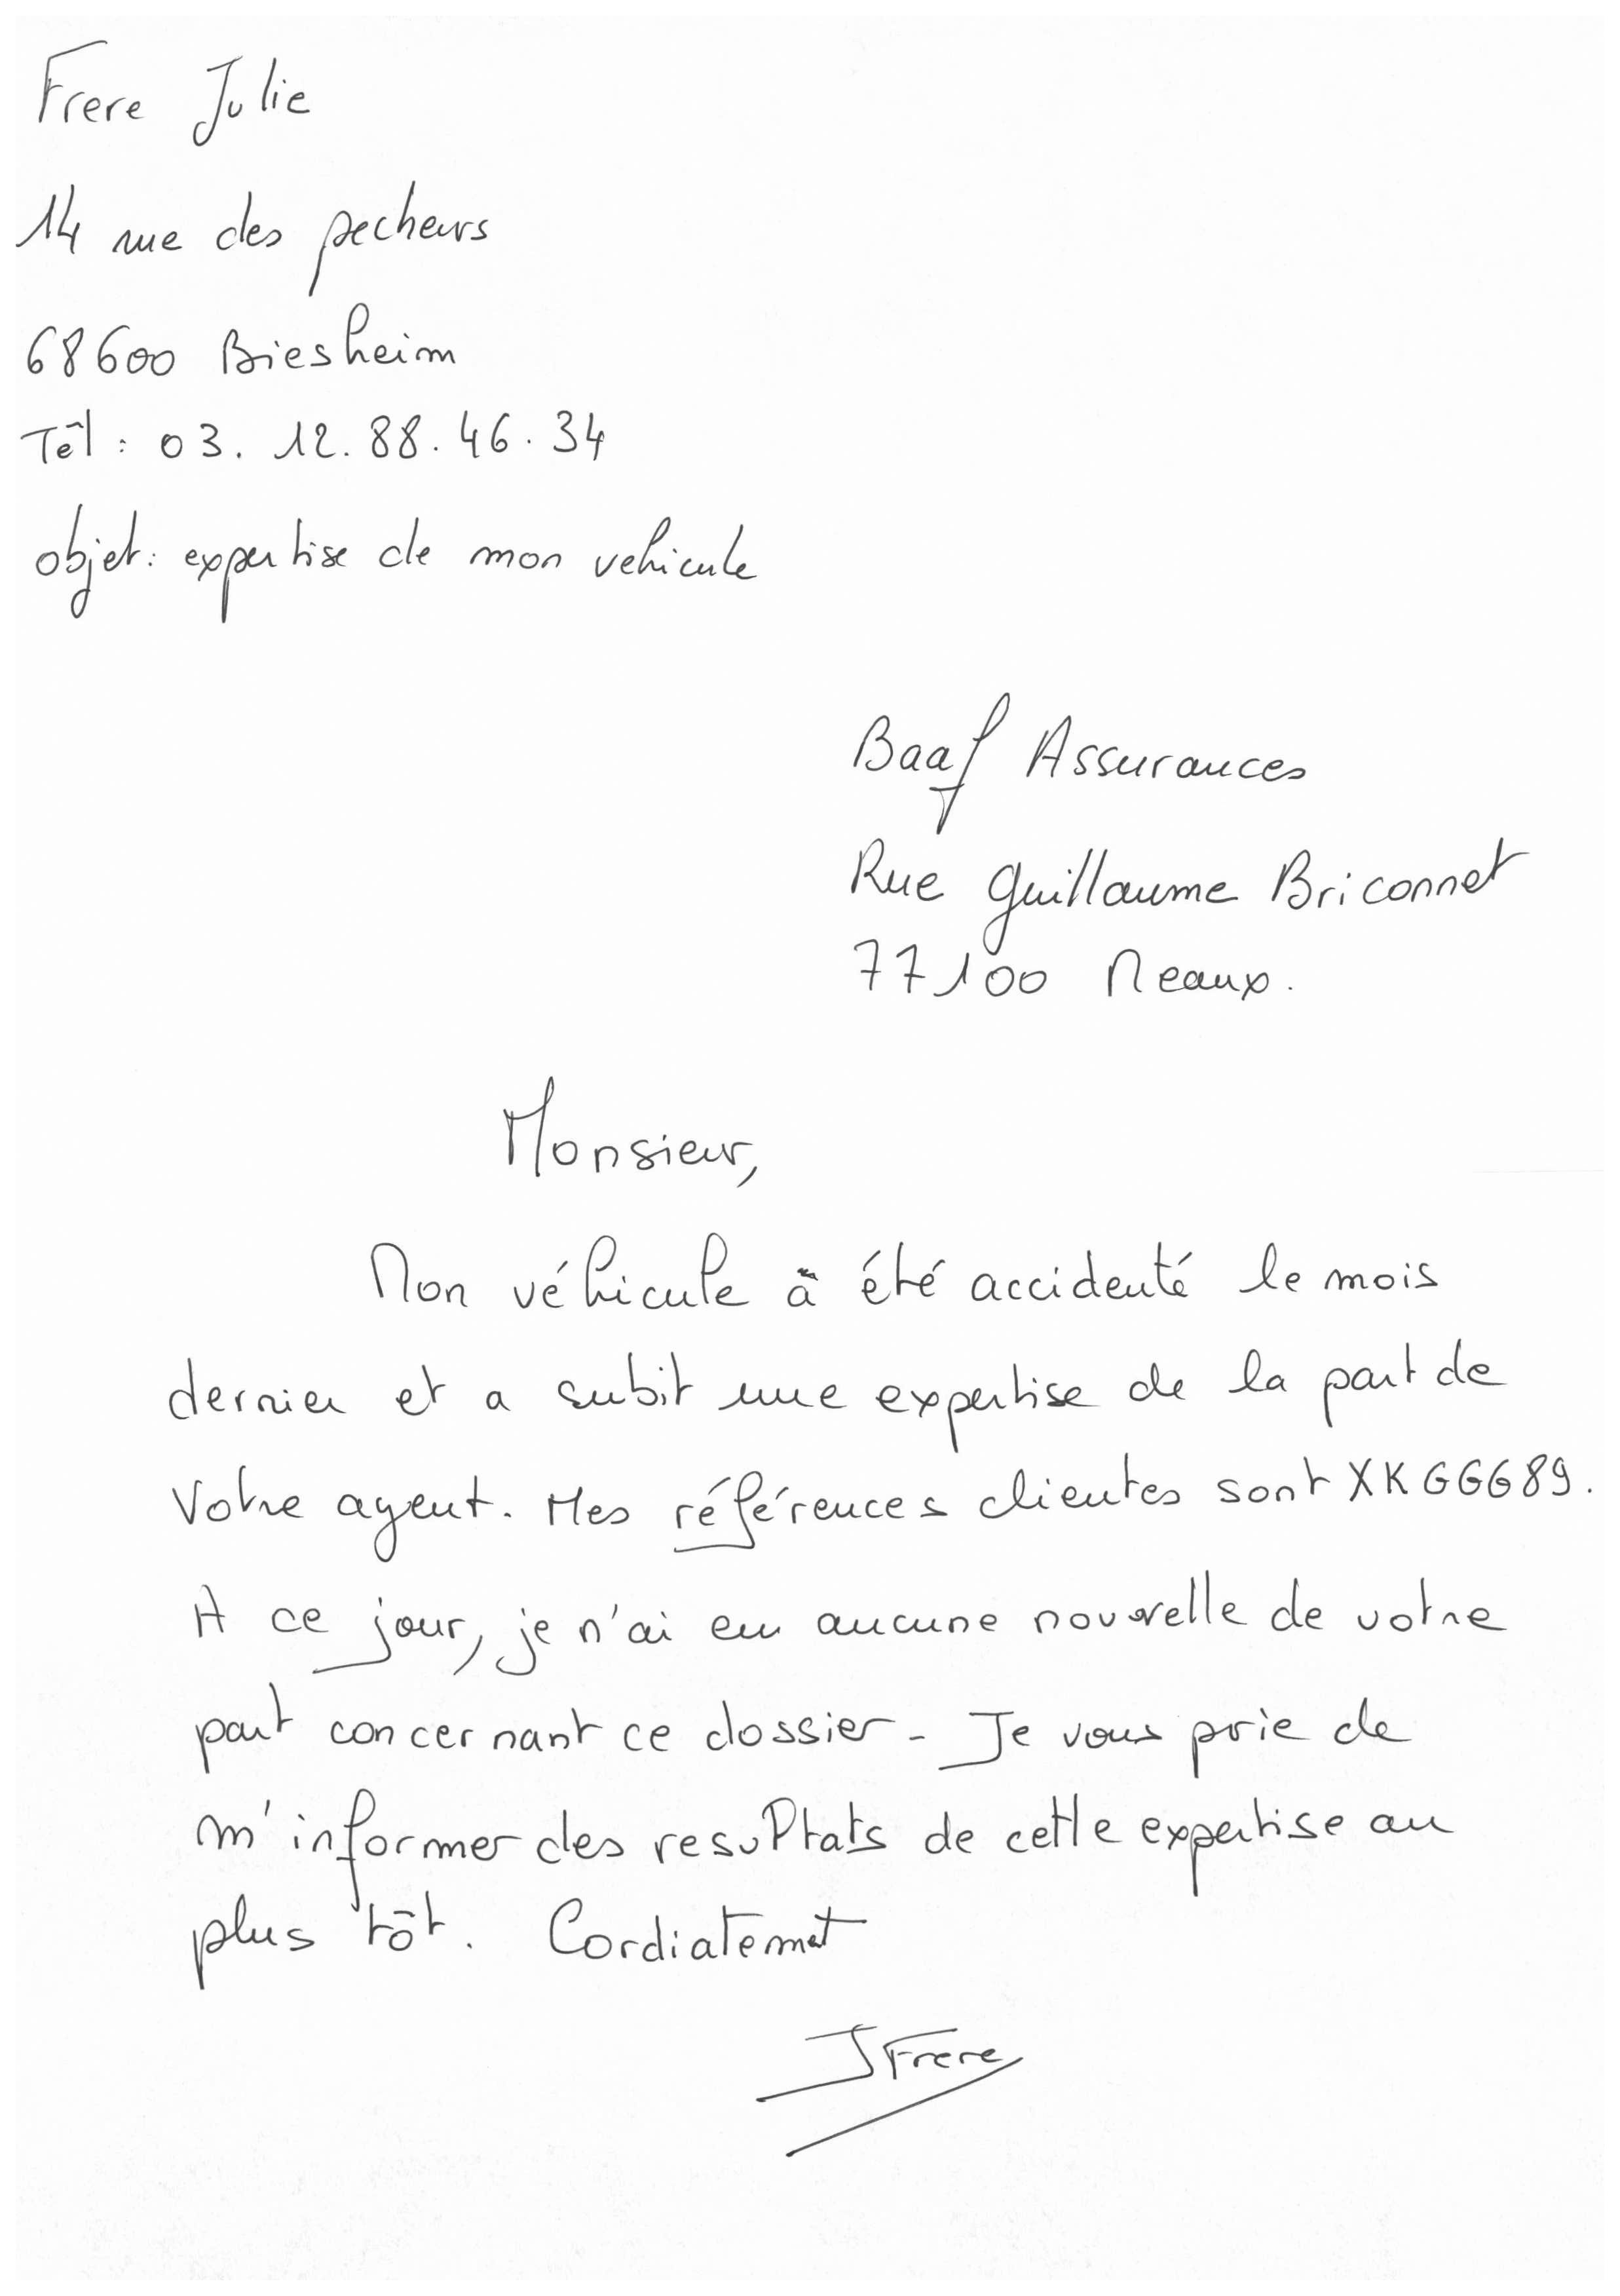 Frere Julie
14 rue des pecheurs
68600 Biesheim
Tél : 03. 12. 88. 46. 34
objet: expertise de mon vehicule
Baaf Assurances
Rue Guillaume Briconnet
77100 Meaux.
Monsieur,
Mon véhicule à été accidenté le mois
dernier et a subit une expertise de la part de
Votre agent. Mes références clientes sont XKGGG89.
A ce jour, je n'ai eu aucune nouvelle de votre
part concernant ce dossier - Je vous prie de
m'informer des resultats de cette expertise au
plus tôt. Cordialement
JFrere